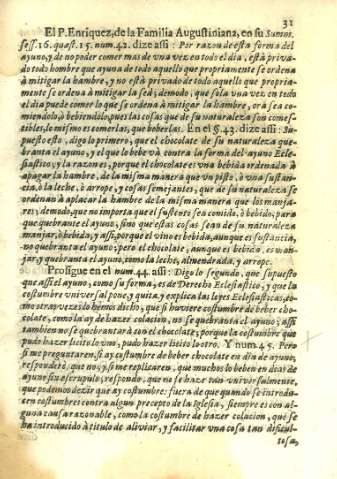 31
El P. Enriquez, de la Familia Augustiniana, en su Sumos.
sess. 16. quæst. 15. num. 42. dize assi: Por razon de esta forma del
ayuno, y de no poder comer mas de una vez en todo el dia, està priva-
do todo hombre que ayuna de todo aquello que propriamente se ordena
à mitigar la hambre, y no està privado de todo aquello que propria-
mente se ordena à mitigar la sed; demodo, que sola una vez en todo
el dia puede comer lo que se ordena à mitigar la hambre, ora sea co-
miendolo, ò bebiendolo, pues las cosas que de su naturaleza son comes-
tibles, lo mismo es comerlas, que beberlas. En el §. 43. dize assi: Su-
puesto esto, digo lo primero, que el chocolate de su naturaleza que-
branta el ayuno, y el que lo bebe và contra la forma del ayuno Ecle-
siastico; y la razon es, porque el chocolate es una bebida ordenida à
apagar la hambre, de la misma manera que un pisto, ò una sustan-
cia, ò la leche, ò arrope, y cosas semejantes, que de su naturaleza se
ordenan à aplacar la hambre de la misma manera que los manja-
res; demodo, que no importa que el sustento sea comido, ò bebido, para
que quebrante el ayuno, sino que estas cosas sean de su naturaleza
manjar, ò bebida, y assi, porque el vino es bebida, aunque es sustancia,
no quebranta el ayuno; pero el chocolate, aunque es bebida, es man-
jar, y quebranta el ayuno, como la leche, almendrada, y arrope.
Prosigue en el num. 44. assi: Digo lo segundo, que supuesto
que assi el ayuno, como su forma, es de Derecho Eclesiastico, y que la
costumbre universal pone, y quita, y explica las leyes Eclesiasticas, co-
mo otras vezes lo hemos dicho, que si huviere costumbre de beber cho-
colate, como la ay de hazer colacion, no se quebranta el ayuno; assi
tambien no se quebrantarà con el chocolate; porque la costumbre que
pudo hazer licito lo uno, pudo hazer licito lo otro. Y num. 45. Pero
si me preguntaren, si ay costumbre de beber chocolate en dia de ayuno,
responderè, que no; y si me replicaren, que muchos lo beben en dias de
ayuno sin escrupulo, respondo, que no se haze tan universalmente,
que podemos dezir que ay costumbre: fuera de que quando se introdu-
cen costumbres contra algun precepto de la Iglesia, siempre es con al-
guna causa razonable, como la costumbre de hazer colacion, que se
ha introducido à titulo de aliviar, y facilitar una cosa tan dificul-
tosa,